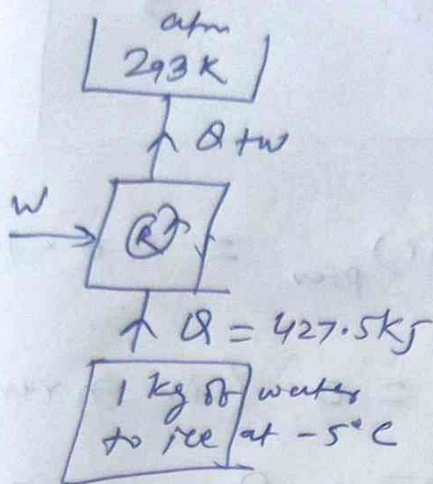 atm
293K
Q+w
W
R
Q = 427.5kJ
1 kg of water
to ice at -5°C